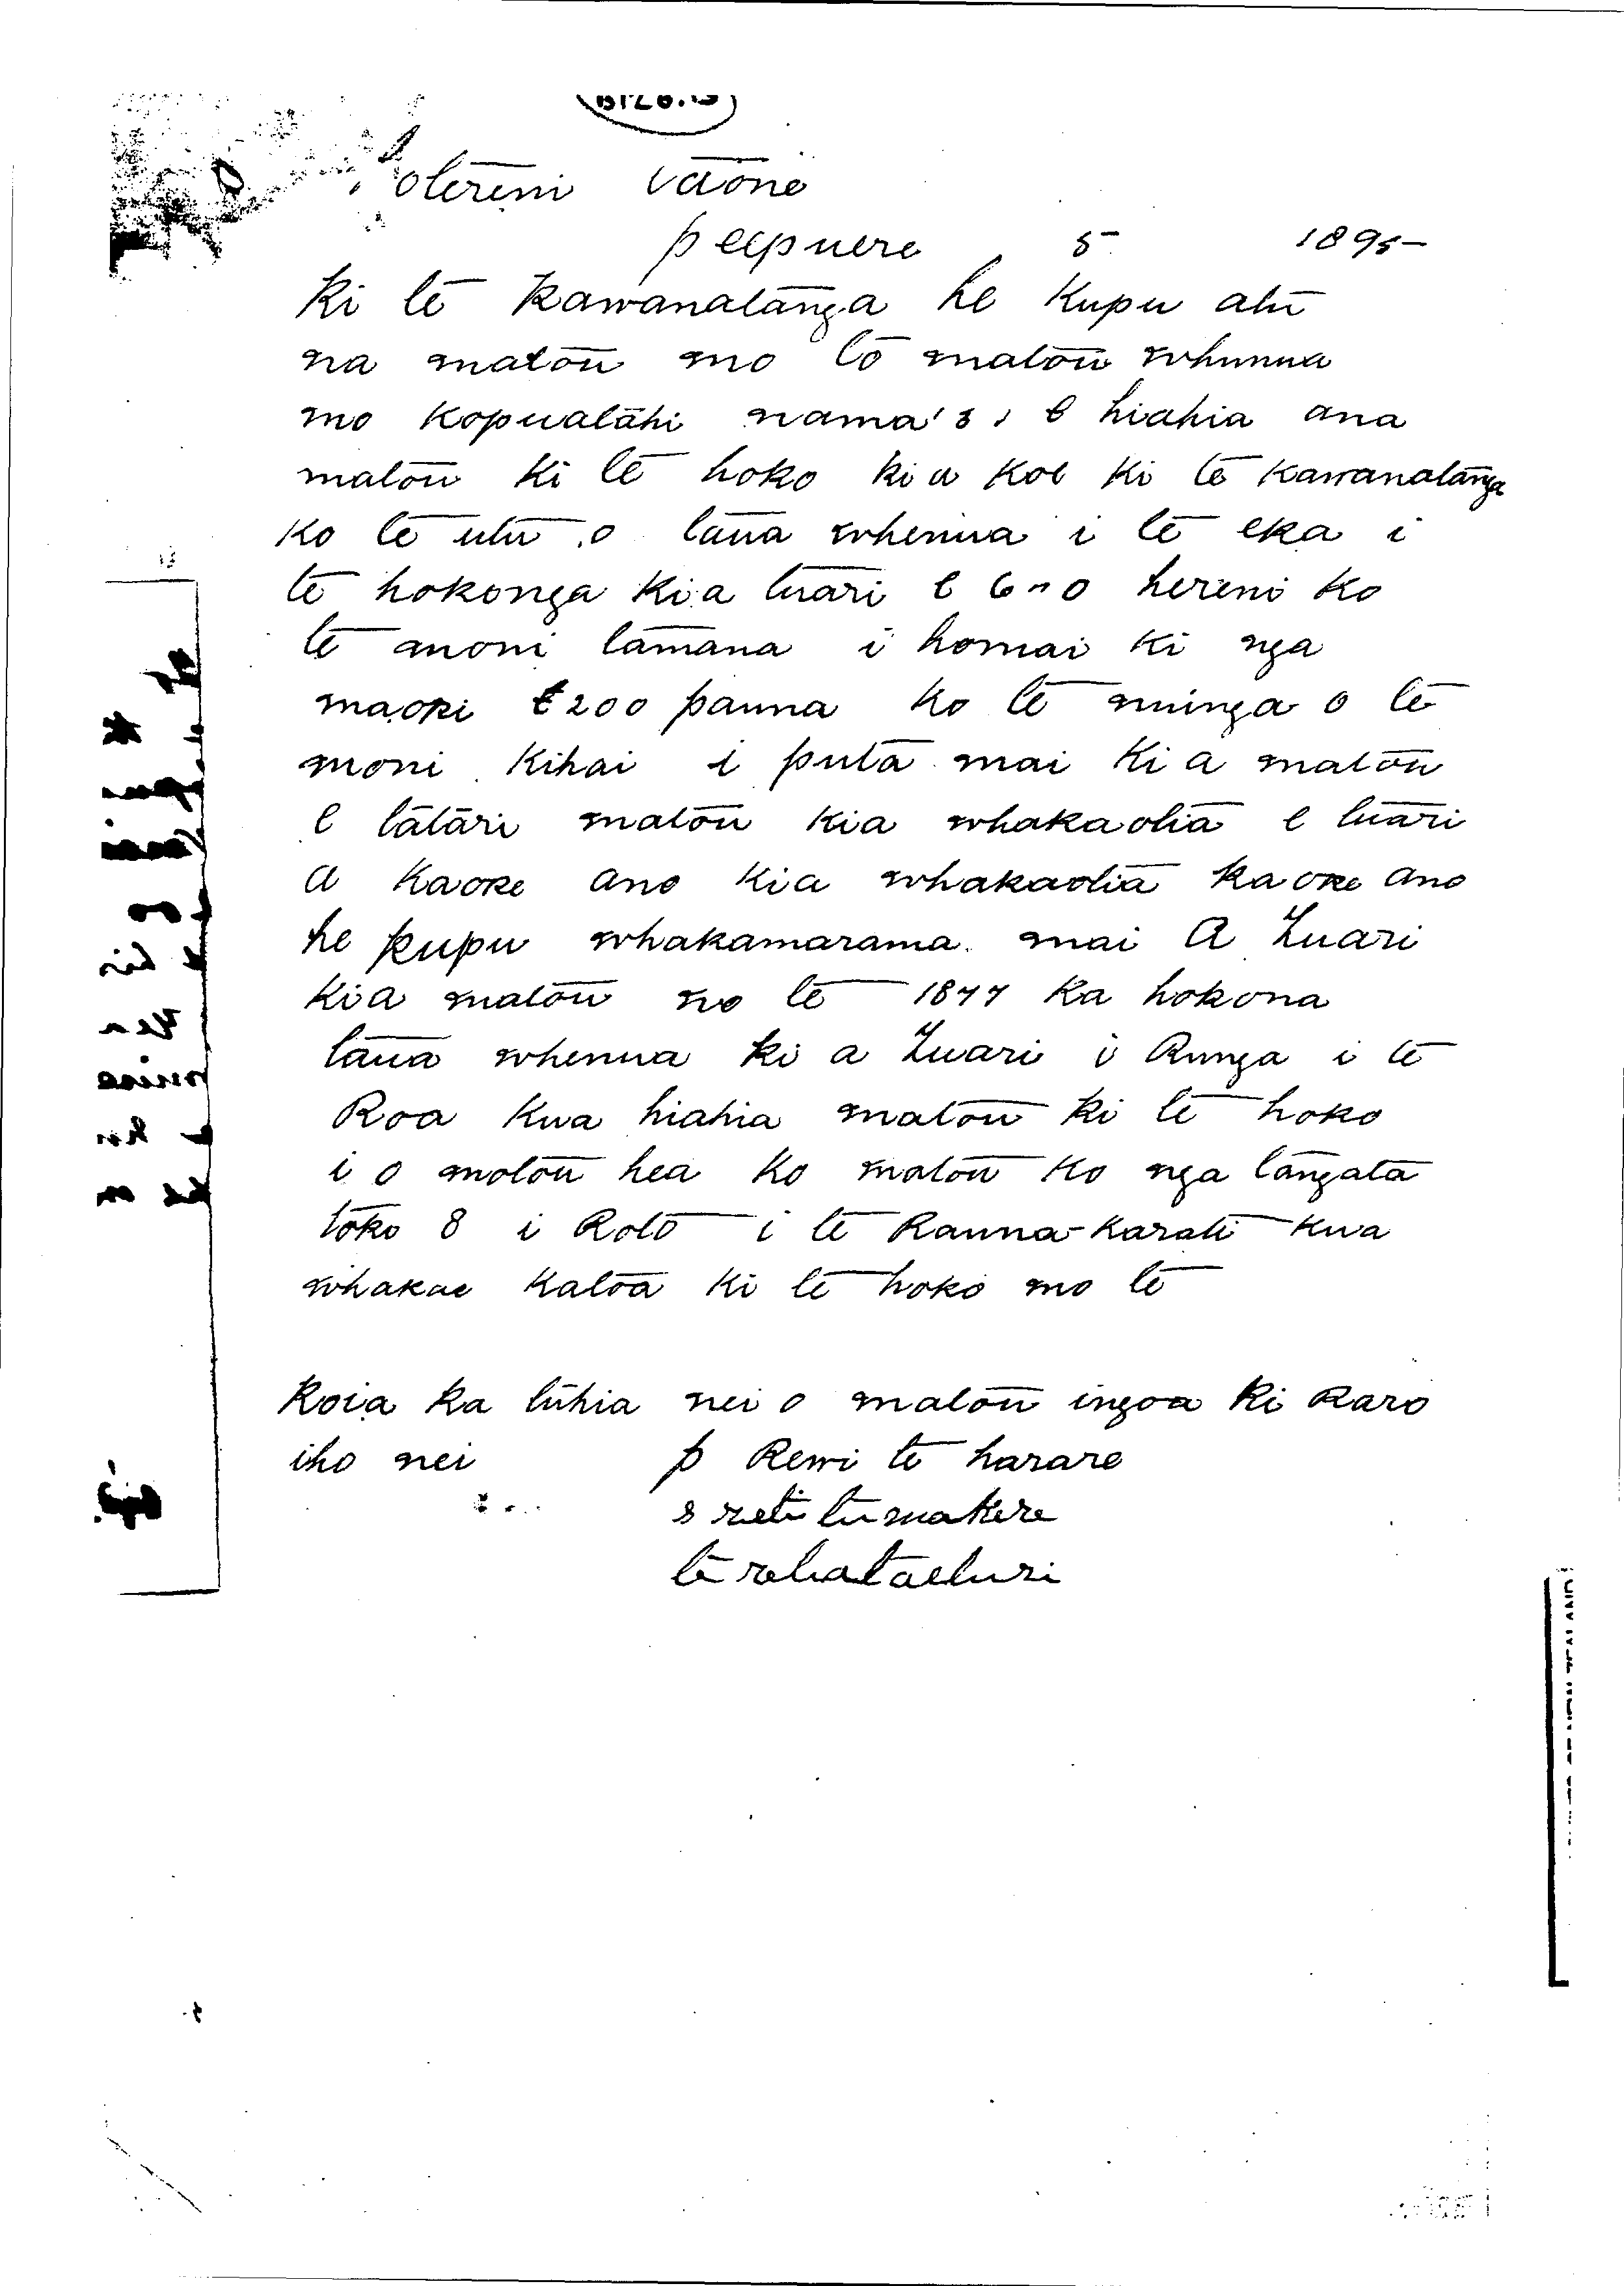 otereni taone
pepuere 5 1895
Ki te Kawanatanga he Kupu atu
na matou mo to matou whunua
mo Kopuatahi nama 8 1 e hiahia ana
matou ki te hoko ki a koe ki te Kawanatanga
Ko te utu o taua whenua i te eka i
te hokonga Kia tuari e 6 hereni ko
te moni tamana i homai ki nga
maori £200 pauna ko te nuinga o te
moni kihai i puta mai ki a matou
e tatari matou kia whakaotia e tuari
a kaore ano kia whakaotia kaore ano
he kupu whakamarama mai A Tuari
kia matou no te 1877 ka hokona
taua whenua ki a Tuari i Runga i te
Roa kua hiahia matou ki te hoko
i o motou hea ko matou ko nga tangata
toko 8 i Roto i te Rauna-karati kua
whakae katoa ki te hoko mo te
Koia ka tuhia nei o matou ingoa ki Raro
iho nei p Rewi te harare